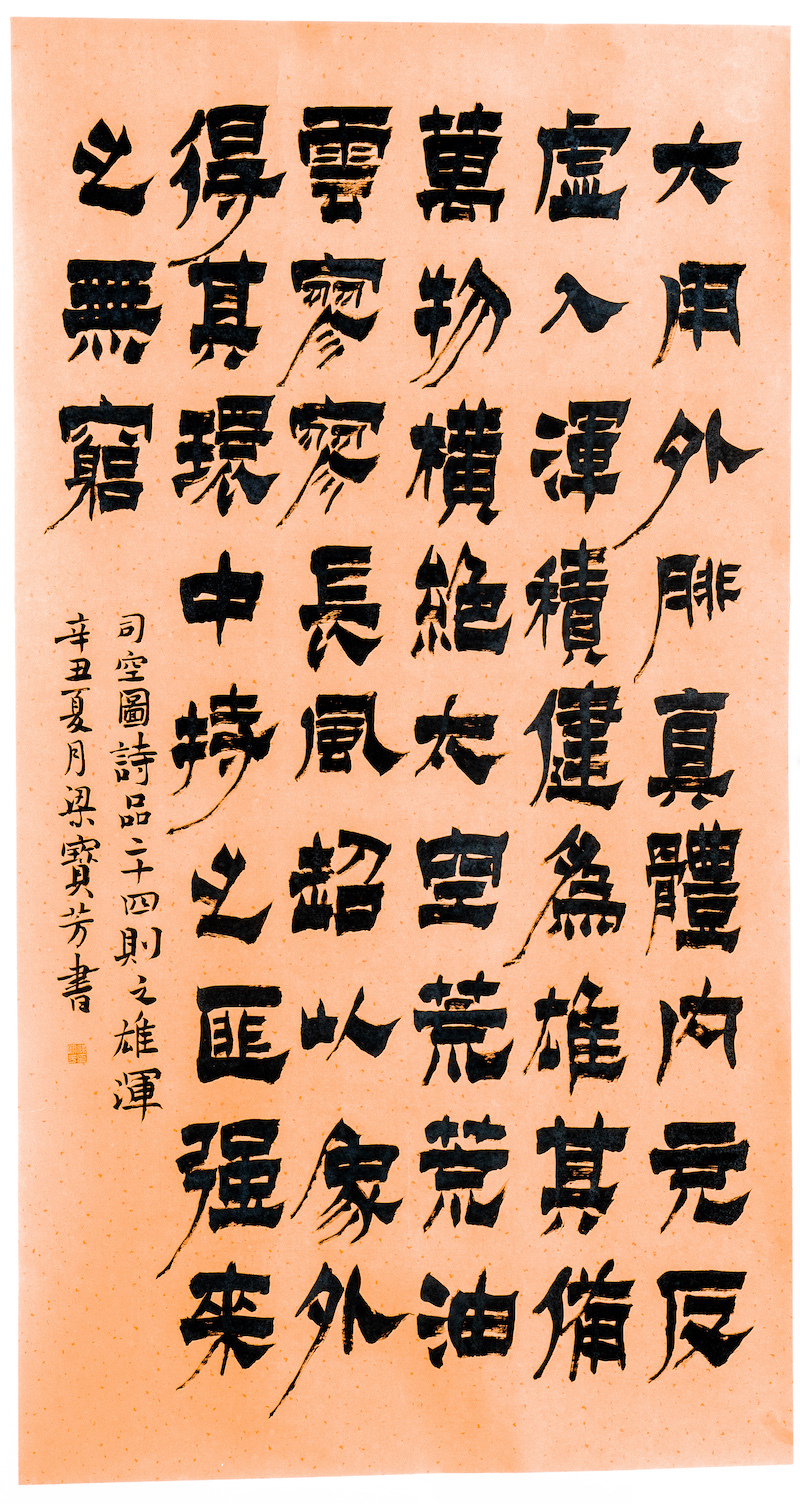 大用外腓真體内充反
虛入渾積健為雄其備
萬物橫絕太空荒荒油
雲寥寥長風超以象外
得其環中持之匪强來
之無窮
司空圖詩品二十四則之雄渾
辛丑夏月梁寶芳書